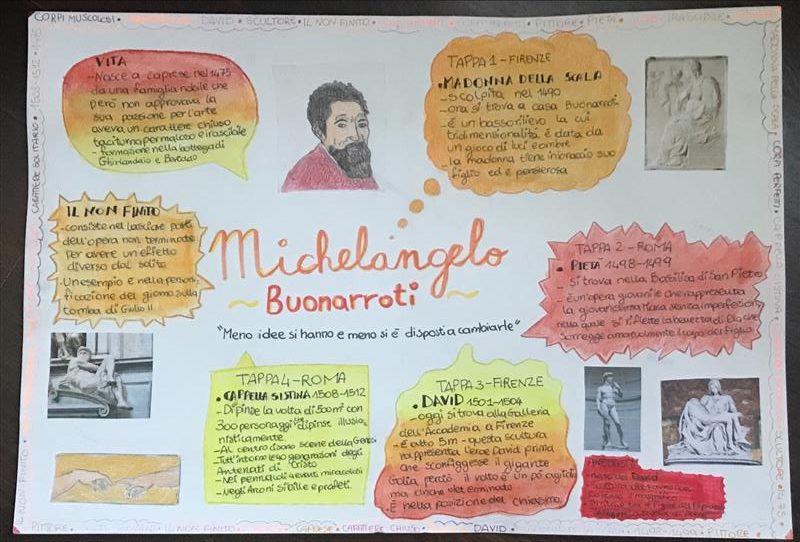 CORPI MUSCOLOSI
DAVID • SCULTORE • IL NON FINITO
PITTORE • PIETÀ
IRASCIBILE
CARATTERE SOLITARIO • 1508-1512 • 1475
VITA
- Nasce a caprese nel 1475
da una famiglia nobile che
però non approvava la
sua passione per l'arte
aveva un carattere chiuso
taciturno permaloso e irascibile
- formazione nella bottega di
Ghirlandaio e
TAPPA 1 - FIRENZE
• MADONNA DELLA SCALA
- scolpita nel 1490
- ora si trova a casa Buonarroti
- è un bassorilievo la cui
tridimensionalità è data da
un gioco di luci e ombre
la madonna tiene in braccio suo
figlio ed è pensierosa
IL NON FINITO
- consiste nel lasciare parti
dell'opera non terminate
per avere un effetto
diverso dal solito
- Un esempio è nella personi
ficazione del giorno sulla
tomba di Giulio II
Michelangelo
~ Buonarroti ~
"Meno idee si hanno e meno si è disposti a cambiarle"
TAPPA 2 - ROMA
• PIETÀ 1498-1499
- Si trova nella Basilica di San Pietro
- è un'opera giovanile che rappresenta
la giovanissima Maria senza imperfezioni
nella quale si riflette la bellezza di Dio che
sorregge amorevolmente il corpo del figlio
TAPPA 4 - ROMA
• CAPPELLA SISTINA 1508-1512
- Dipinse la volta di 500m² con
300 personaggi che dipinse illusio
nisticamente.
- Al centro ci sono scene della Genesi
- Tutt'intorno le 40 generazioni degli
Antenati di Cristo
- Nei pennacchi 4 eventi miracolosi
- Negli Arconi sibille e profeti.
TAPPA 3 - FIRENZE
• DAVID 1501-1504
- oggi si trova alla Galleria
dell'Accademia, a Firenze
- È alto 5m - questa scultura
rappresenta l'eroe David prima
che sconfiggesse il gigante
Golia, perciò il volto è un pó agitato
ma anche determinato
- È nella posizione del chiasmo.
IL NON FINITO
CORPI PERFETTI
SCULTORE • 1475
PITTORE
IL NON FINITO
CARATTERE CHIUSO
DAVID